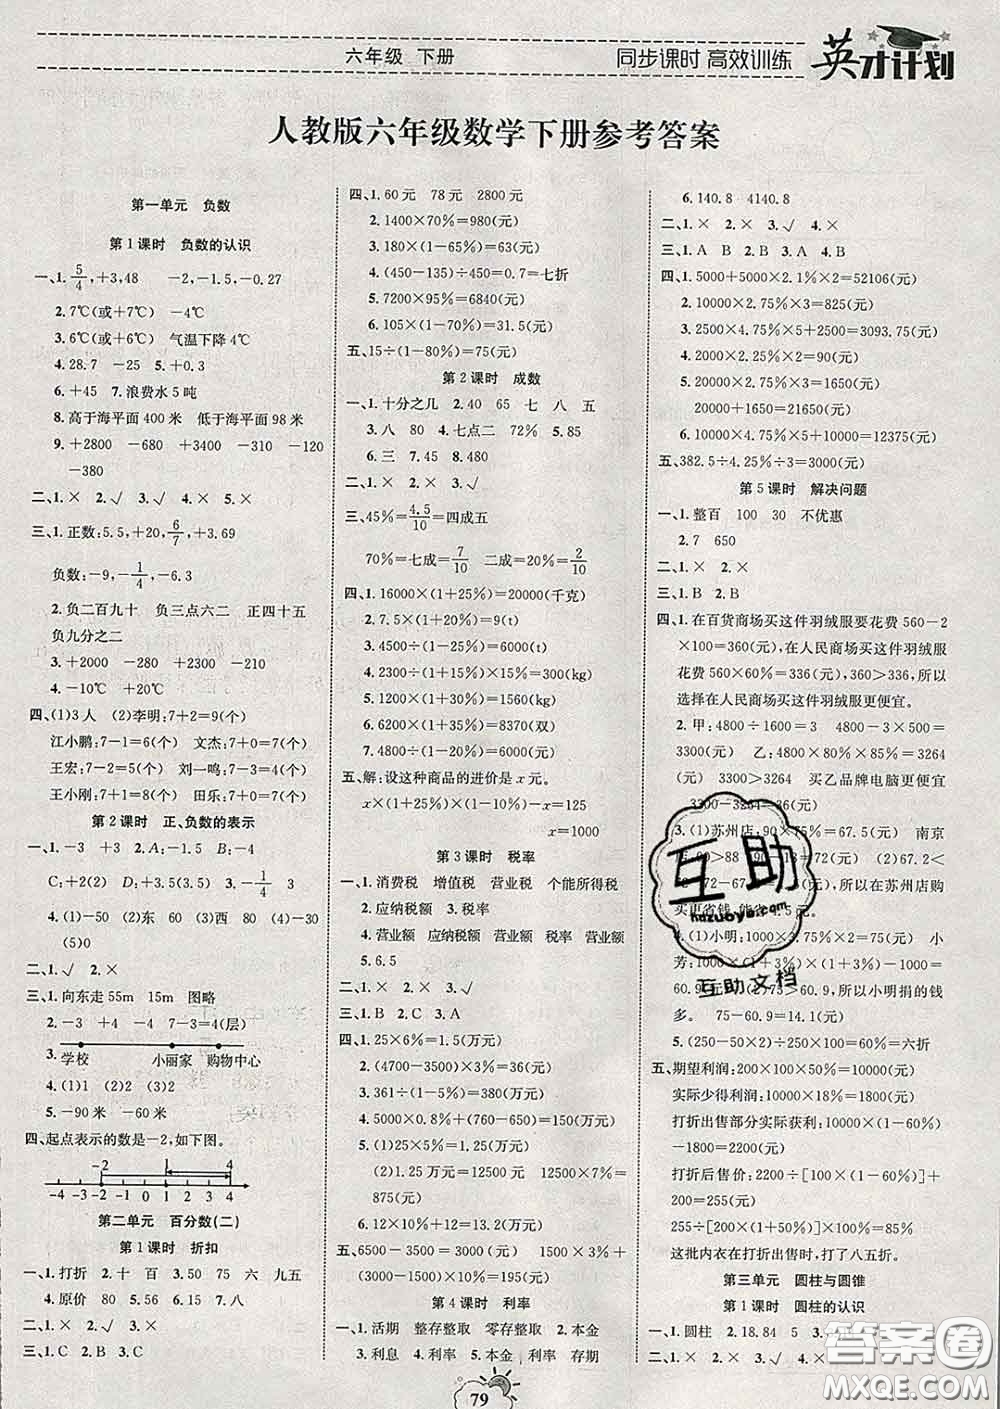 六年级 下册
同步课时 高效训练
英才计划
人教版六年级数学下册参考答案
第一单元 负数
第1课时 负数的认识
一、1. 5/4,+3,48 -2,-1.5,-0.27
2.7℃(或+7℃) -4℃
3.6℃(或+6℃) 气温下降4℃
4.28.7 -25 5.+0.1
6.+45 7.浪费水5吨
8.高于海平面400米 低于海平面98米
9.+2800 -680 +3400 -310 -120
-380
二、1.× 2.√ 3.√ 4.× 5.×
三、1.正数:5.5,+20,6/7,+3.69
负数:-9,-1/4,-6.3
2.负二百九十 负三点六二 正四十五
负九分之二
3.+2000 -280 -80 +1080
4.-10℃ +20℃
四、(1)3人 (2)李明:7+2=9(个)
江小鹏:7-1=6(个) 文杰:7+0=7(个)
王宏:7-2=5(个) 刘一鸣:7-5=2(个)
王小刚:7+1=8(个) 田乐:7+0=7(个)
第2课时 正、负数的表示
一、1.-3 +3 2.A:-1.5 B:-4
C:+2(2) D:+3.5(3.5) 3.-1/4 3
4.(1)-50 (2)东 60 (3)西 80 (4)-30
(5)0
二、1.√ 2.×
三、1.向东走55m 15m 图略
2.-3 +4 7-3=4(层)
3.
学校 小丽家 购物中心
4.(1)1 (2)4
5.-90米 -60米
四、起点表示的数是-2,如下图。
-2 1 4
-4 -3 -2 -1 0 1 2 3 4
第二单元 百分数(二)
第1课时 折扣
一、1.打折 2.十 百 3.50 75 六 九五
4.原价 80 5.56 6.15 7.八
二、1.× 2.√ 3.×
三、1.C 2.B 3.C
四、1.60元 78元 2800元
2.1400×70%=980(元)
3.180×(1-65%)=63(元)
4.(450-135)÷450=70%=七折
5.7200×95%=6840(元)
6.105×(1-70%)=31.5(元)
五、15÷(1-80%)=75(元)
第2课时 成数
一、1.十分之几 2.40 65 七 八 五
3.八 80 4.七点二 72% 5.85
6.三 7.45 8.480
二、1.× 2.× 3.× 4.√
三、45%=4.5/10=四成五
70%=七成=7/10 二成=20%=2/10
四、1.16000×(1+25%)=20000(千克)
2.7.5×(1+20%)=9(t)
3.4500÷(1-25%)=6000(t)
4.2300÷(1+15%)=2000(kg)
5.1200×(1+30%)=1560(kg)
6.6200×(1+35%)=8370(双)
7.4500÷(1-25%)=6000(元)
五、解:设这种商品的进价是x元。
x×(1+25%)×(1-10%)-x=125
x=1000
第3课时 税率
一、1.消费税 增值税 营业税 个能所得税
2.应纳税额 3.税率
4.营业额 应纳税额 营业额 税率 营业额
5.6.5
二、1.× 2.× 3.× 4.√
三、1.C 2.C 3.A
四、1.25×6%=1.5(万元)
2.(4700-3500)×3%=36(元)
3.361÷(1-5%)=380(元)
4.650×12%+(760-650)=188(元)
5.(1)25×5%=1.25(万元)
(2)1.25万元=12500元 12500×7%=
875(元)
6.12×10%+12=13.2(万元)
五、6500-3500=3000(元) 1500×3%+
(3000-1500)×10%=195(元)
第4课时 利率
一、1.活期 整存整取 零存整取 2.本金
3.利息 4.利率 5.本金 利率 存期
6.140.8 4140.8
二、1.× 2.× 3.√ 4.×
三、1.A B 2.B 3.A 4.B
四、1.5000+5000×2.1%×2=52106(元)
2.10000×2.75%×3=825(元)
3.2500×4.75%×5+2500=3093.75(元)
4.10000×4.75%×5=2375(元)
5.20000×2.75%×3=1650(元)
20000+1650=21650(元)
6.10000×4.75%×5+10000=12375(元)
五、382.5÷4.25%÷3=3000(元)
第5课时 解决问题
一、1.整百 100 30 不优惠
2.7 650
二、1.× 2.×
三、1.B 2.B
四、1.在百货商场买这件羽绒服要花费560-2
×100=360(元),在人民商场买这件羽绒服
花费560×60%=336(元),360>336,所以
买这件羽绒服在人民商场买这件羽绒服更便宜。
2.甲:4800÷1600=3 4800-3×500=
3300(元) 乙:4800×80%×85%=3264
(元) 3300>3264 买乙品牌电脑更便宜
3300-3264=36(元)
3.(1)苏州店:90×75%=67.5(元) 南京
=72(元) (2)67.2<
所以在苏州店购
买更省钱,能省4.5元。
4.(1)小明:1000×3.75%×2=75(元) 小
芳:1000×(1+3%)×(1+3%)-1000=
60.9(元) 75>60.9,所以小明捐的钱
多。 75-60.9=14.1(元)
5.(250-50×2)÷250=60%=六折
五、期望利润:7500×100×40%=3000(元)
实际少得利润:10000×18%=1800(元)
打折出售部分实际获利:10000×(1-60%)
-1800=2200(元)
打折后售价:2200÷[100×(1-60%)]+
200=255(元)
255÷[200×(1+50%)]=85%
这批内衣在打折出售时,打了八五折。
第三单元 圆柱与圆锥
第1课时 圆柱的认识
一、1.圆柱 2.18.84 5
二、1.× 2.× 3.×
互助
huzuoye.com
互助文档
答案圈
MXQE.COM
79